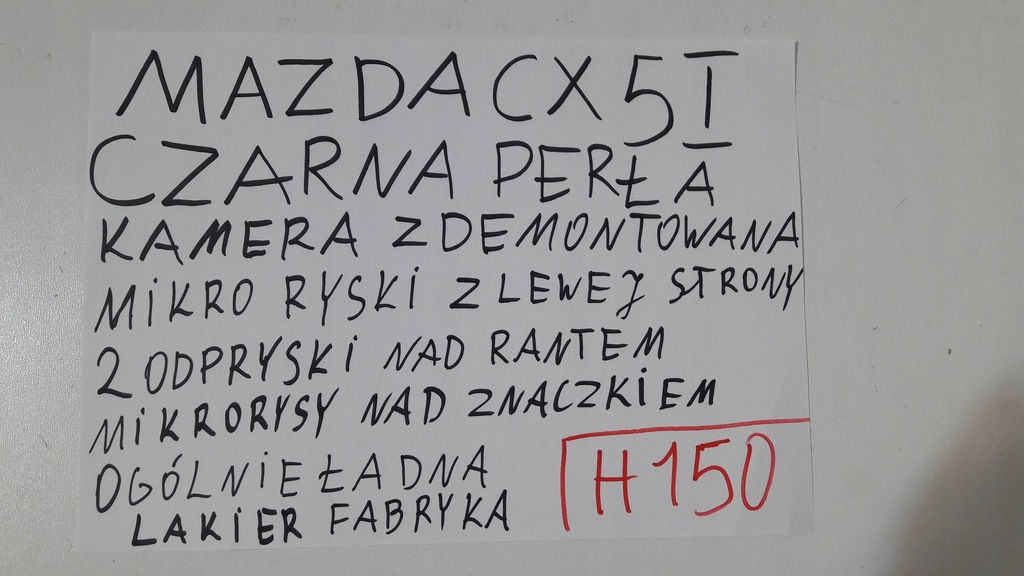 MAZDA CX 5 I
CZARNA PERŁA
KAMERA ZDEMONTOWANA
MIKRO RYSKI Z LEWEJ STRONY
2 ODPRYSKI NAD RANTEM
MIKRORYSY NAD ZNACZKIEM
OGÓLNIE ŁADNA
LAKIER FABRYKA
H150